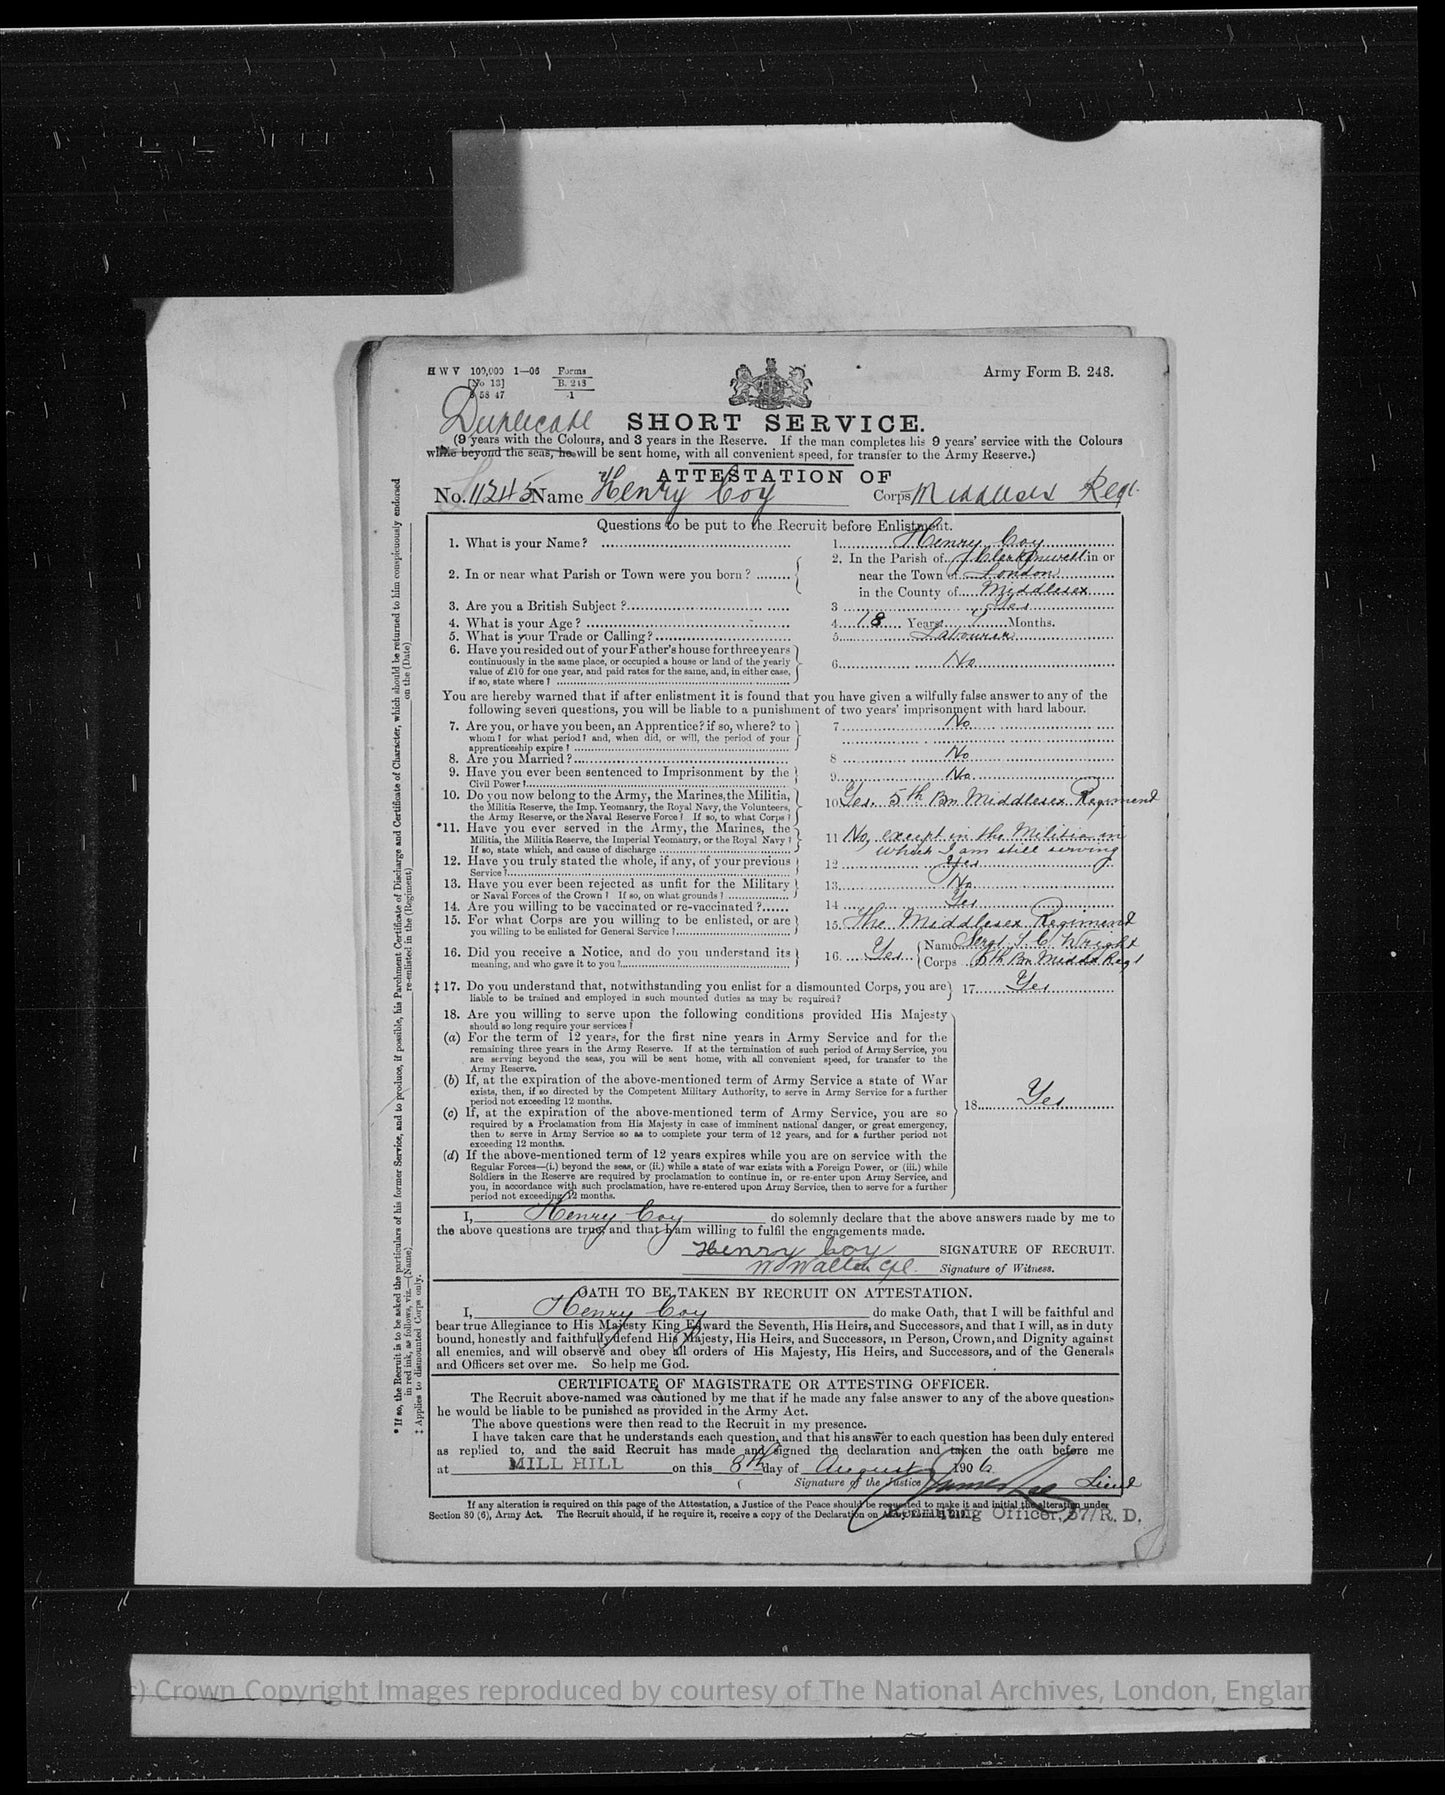 H W V 100,000 1—06 Forms
[No 13] B. 248
8 58 47 1
Army Form B. 248.
Duplicate SHORT SERVICE.
(9 years with the Colours, and 3 years in the Reserve. If the man completes his 9 years' service with the Colours
while beyond the seas, he will be sent home, with all convenient speed, for transfer to the Army Reserve.)
ATTESTATION OF
No. 11245 Name Henry Coy Corps Middlesex Regt.
Questions to be put to the Recruit before Enlistment.
1. What is your Name? 1. Henry Coy
2. In or near what Parish or Town were you born? 2. In the Parish of Clerkenwell in or
near the Town of London
in the County of Middlesex
3. Are you a British Subject? 3 Yes
4. What is your Age? 4. 18 Years 7 Months.
5. What is your Trade or Calling? 5. Labourer
6. Have you resided out of your Father's house for three years
continuously in the same place, or occupied a house or land of the yearly
value of £10 for one year, and paid rates for the same, and, in either case,
if so, state where? 6. No
You are hereby warned that if after enlistment it is found that you have given a wilfully false answer to any of the
following seven questions, you will be liable to a punishment of two years' imprisonment with hard labour.
7. Are you, or have you been, an Apprentice? if so, where? to 7. No
whom? for what period? and, when did, or will, the period of your
apprenticeship expire?
8. Are you Married? 8 No
9. Have you ever been sentenced to Imprisonment by the 9. No
Civil Power?
10. Do you now belong to the Army, the Marines, the Militia, 10 Yes. 5th Bn Middlesex Regiment
the Militia Reserve, the Imp. Yeomanry, the Royal Navy, the Volunteers,
the Army Reserve, or the Naval Reserve Force? If so, to what Corps?
*11. Have you ever served in the Army, the Marines, the 11 No, except in the Militia in
Militia, the Militia Reserve, the Imperial Yeomanry, or the Royal Navy? which I am still serving
If so, state which, and cause of discharge
12. Have you truly stated the whole, if any, of your previous 12 Yes
Service?
13. Have you ever been rejected as unfit for the Military 13. No
or Naval Forces of the Crown? If so, on what grounds?
14. Are you willing to be vaccinated or re-vaccinated? 14 Yes
15. For what Corps are you willing to be enlisted, or are 15. The Middlesex Regiment
you willing to be enlisted for General Service?
16. Did you receive a Notice, and do you understand its 16. Yes Name Sergt. T. C. Wright
meaning, and who gave it to you? Corps 5th Bn Middx Regt
‡17. Do you understand that, notwithstanding you enlist for a dismounted Corps, you are 17. Yes
liable to be trained and employed in such mounted duties as may be required?
18. Are you willing to serve upon the following conditions provided His Majesty
should so long require your services?
(a) For the term of 12 years, for the first nine years in Army Service and for the
remaining three years in the Army Reserve. If at the termination of such period of Army Service, you
are serving beyond the seas, you will be sent home, with all convenient speed, for transfer to the
Army Reserve.
(b) If, at the expiration of the above-mentioned term of Army Service a state of War
exists, then, if so directed by the Competent Military Authority, to serve in Army Service for a further
period not exceeding 12 months. 18. Yes
(c) If, at the expiration of the above-mentioned term of Army Service, you are so
required by a Proclamation from His Majesty in case of imminent national danger, or great emergency,
then to serve in Army Service so as to complete your term of 12 years, and for a further period not
exceeding 12 months.
(d) If the above-mentioned term of 12 years expires while you are on service with the
Regular Forces—(i.) beyond the seas, or (ii.) while a state of war exists with a Foreign Power, or (iii.) while
Soldiers in the Reserve are required by proclamation to continue in, or re-enter upon Army Service, and
you, in accordance with such proclamation, have re-entered upon Army Service, then to serve for a further
period not exceeding 12 months.
I, Henry Coy do solemnly declare that the above answers made by me to
the above questions are true, and that I am willing to fulfil the engagements made.
Henry Coy SIGNATURE OF RECRUIT.
W Walter Cpl. Signature of Witness.
OATH TO BE TAKEN BY RECRUIT ON ATTESTATION.
I, Henry Coy do make Oath, that I will be faithful and
bear true Allegiance to His Majesty King Edward the Seventh, His Heirs, and Successors, and that I will, as in duty
bound, honestly and faithfully defend His Majesty, His Heirs, and Successors, in Person, Crown, and Dignity against
all enemies, and will observe and obey all orders of His Majesty, His Heirs, and Successors, and of the Generals
and Officers set over me. So help me God.
CERTIFICATE OF MAGISTRATE OR ATTESTING OFFICER.
The Recruit above-named was cautioned by me that if he made any false answer to any of the above questions
he would be liable to be punished as provided in the Army Act.
The above questions were then read to the Recruit in my presence.
I have taken care that he understands each question, and that his answer to each question has been duly entered
as replied to, and the said Recruit has made and signed the declaration and taken the oath before me
at MILL HILL on this 8th day of August 1906
Signature of the Justice Lieut
If any alteration is required on this page of the Attestation, a Justice of the Peace should be requested to make it and initial the alteration under
Section 80 (6), Army Act. The Recruit should, if he require it, receive a copy of the Declaration on
Recruiting Officer, 57/R. D.
*If so, the Recruit is to be asked the particulars of his former Service, and to produce, if possible, his Parchment Certificate of Discharge and Certificate of Character, which should be returned to him conspicuously endorsed
in red ink, as follows, viz.—(Name) re-enlisted in the (Regiment) on the (Date)
‡ Applies to dismounted Corps only.
(c) Crown Copyright Images reproduced by courtesy of The National Archives, London, England